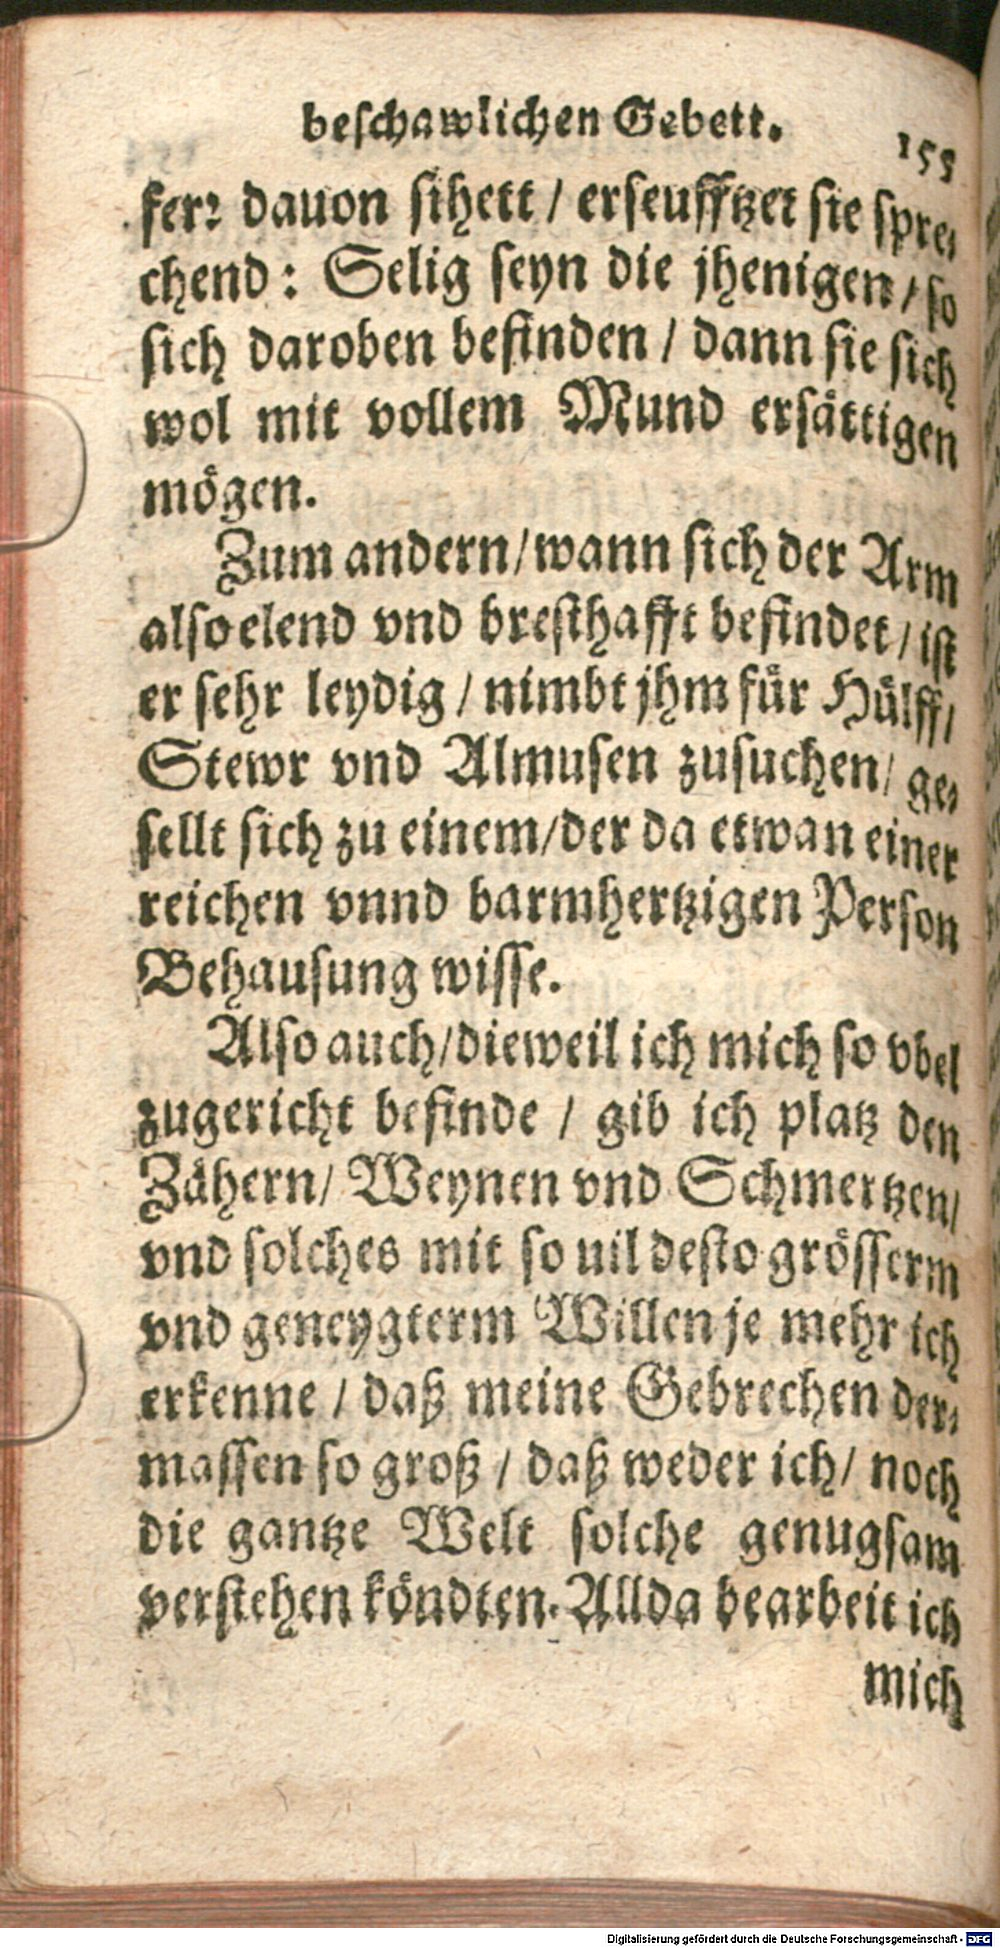 beschawlichen Gebett.
155
fer: dauon sihett / erseufftzet sie spre-
chend: Selig seyn die jhenigen / so
sich daroben befinden / dann sie sich
wol mit vollem Mund ersättigen
mögen.
Zum andern / wann sich der Arm
also elend vnd bresthafft befindet / ist
er sehr leydig / nimbt jhm für Hülff /
Stewr vnd Almusen zusuchen / ge-
sellt sich zu einem / der da etwan einer
reichen vnnd barmhertzigen Person
Behausung wisse.
Also auch / dieweil ich mich so vbel
zugericht befinde / gib ich platz den
Zähern / Weynen vnd Schmertzen /
vnd solches mit so uil desto grösserm
vnd geneygterm Willen je mehr ich
erkenne / daß meine Gebrechen der-
massen so groß / daß weder ich / noch
die gantze Welt solche genugsam
verstehen köndten. Allda bearbeit ich
mich
Digitalisierung gefördert durch die Deutsche Forschungsgemeinschaft - DFG